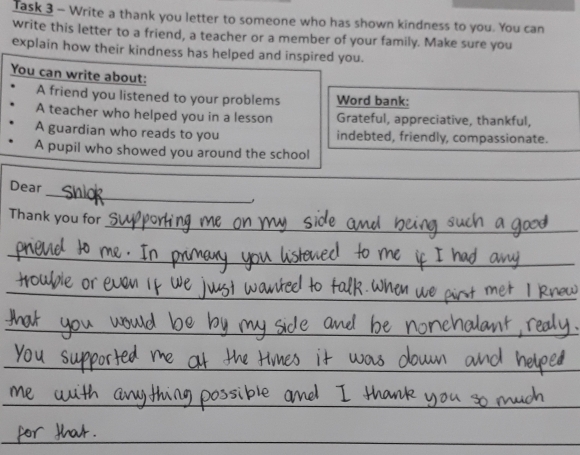 Task 3 – Write a thank you letter to someone who has shown kindness to you. You can
write this letter to a friend, a teacher or a member of your family. Make sure you
explain how their kindness has helped and inspired you.
You can write about:
• A friend you listened to your problems
• A teacher who helped you in a lesson
• A guardian who reads to you
• A pupil who showed you around the school
Word bank:
Grateful, appreciative, thankful,
indebted, friendly, compassionate.
Dear Shlok,
Thank you for supporting me on my side and being such a good
friend to me. In primary you listened to me if I had any
trouble or even if we just wanted to talk. When we first met I knew
that you would be by my side and be nonchalant, realy.
You supported me at the times it was down and helped
me with anything possible and I thank you so much
for that.